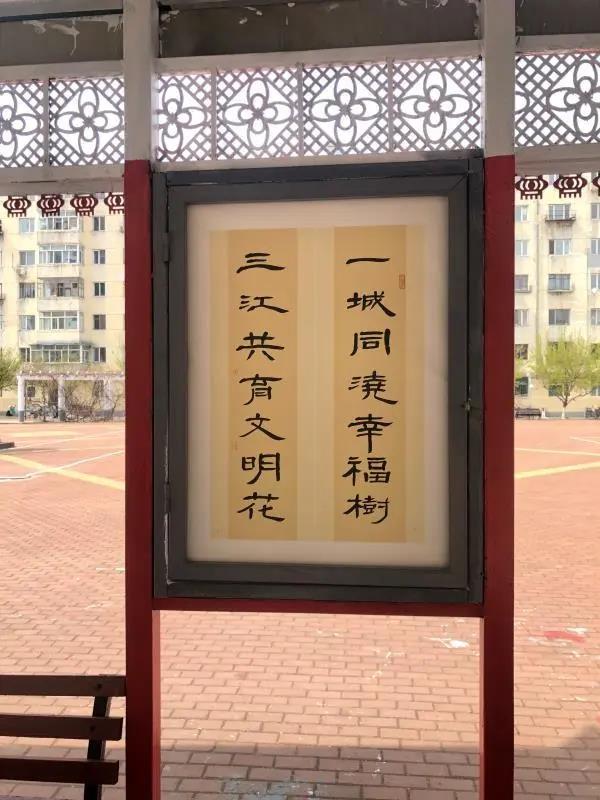 一城同澆幸福樹
三江共育文明花